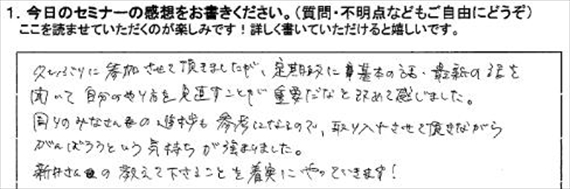 1. 今日のセミナーの感想をお書きください。(質問・不明点などもご自由にどうぞ)
ここを読ませていただくのが楽しみです!詳しく書いていただけると嬉しいです。
久しぶりに参加させて頂きましたが、定期的に基本の話・最新の話を
聞いて自分のやり方を見直すことが重要だなと改めて感じました。
周りのみなさんの進捗も参考になるので、取り入れさせて頂きながら
がんばろうという気持ちが強まりました。
新井さんの教えて下さることを着実にやっていきます!